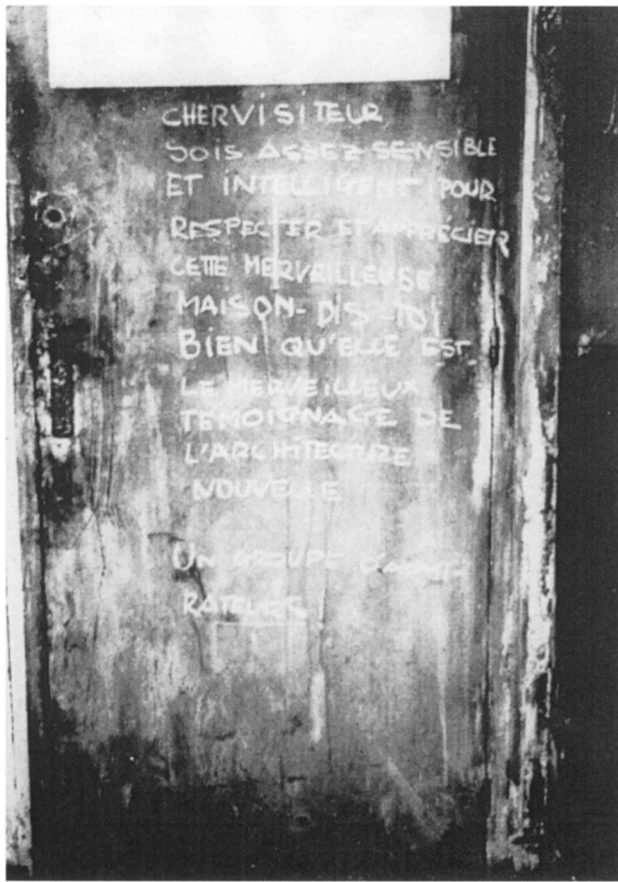 CHER VISITEUR
SOIS ASSEZ SENSIBLE
ET INTELLIGENT POUR
RESPECTER ET APPRÉCIER
CETTE MERVEILLEUSE
MAISON - DIS-TOI
BIEN QU'ELLE EST
LE MERVEILLEUX
TEMOIGNAGE DE
L'ARCHITECTURE
NOUVELLE
UN GROUPE D'ADMI-
RATEURS!